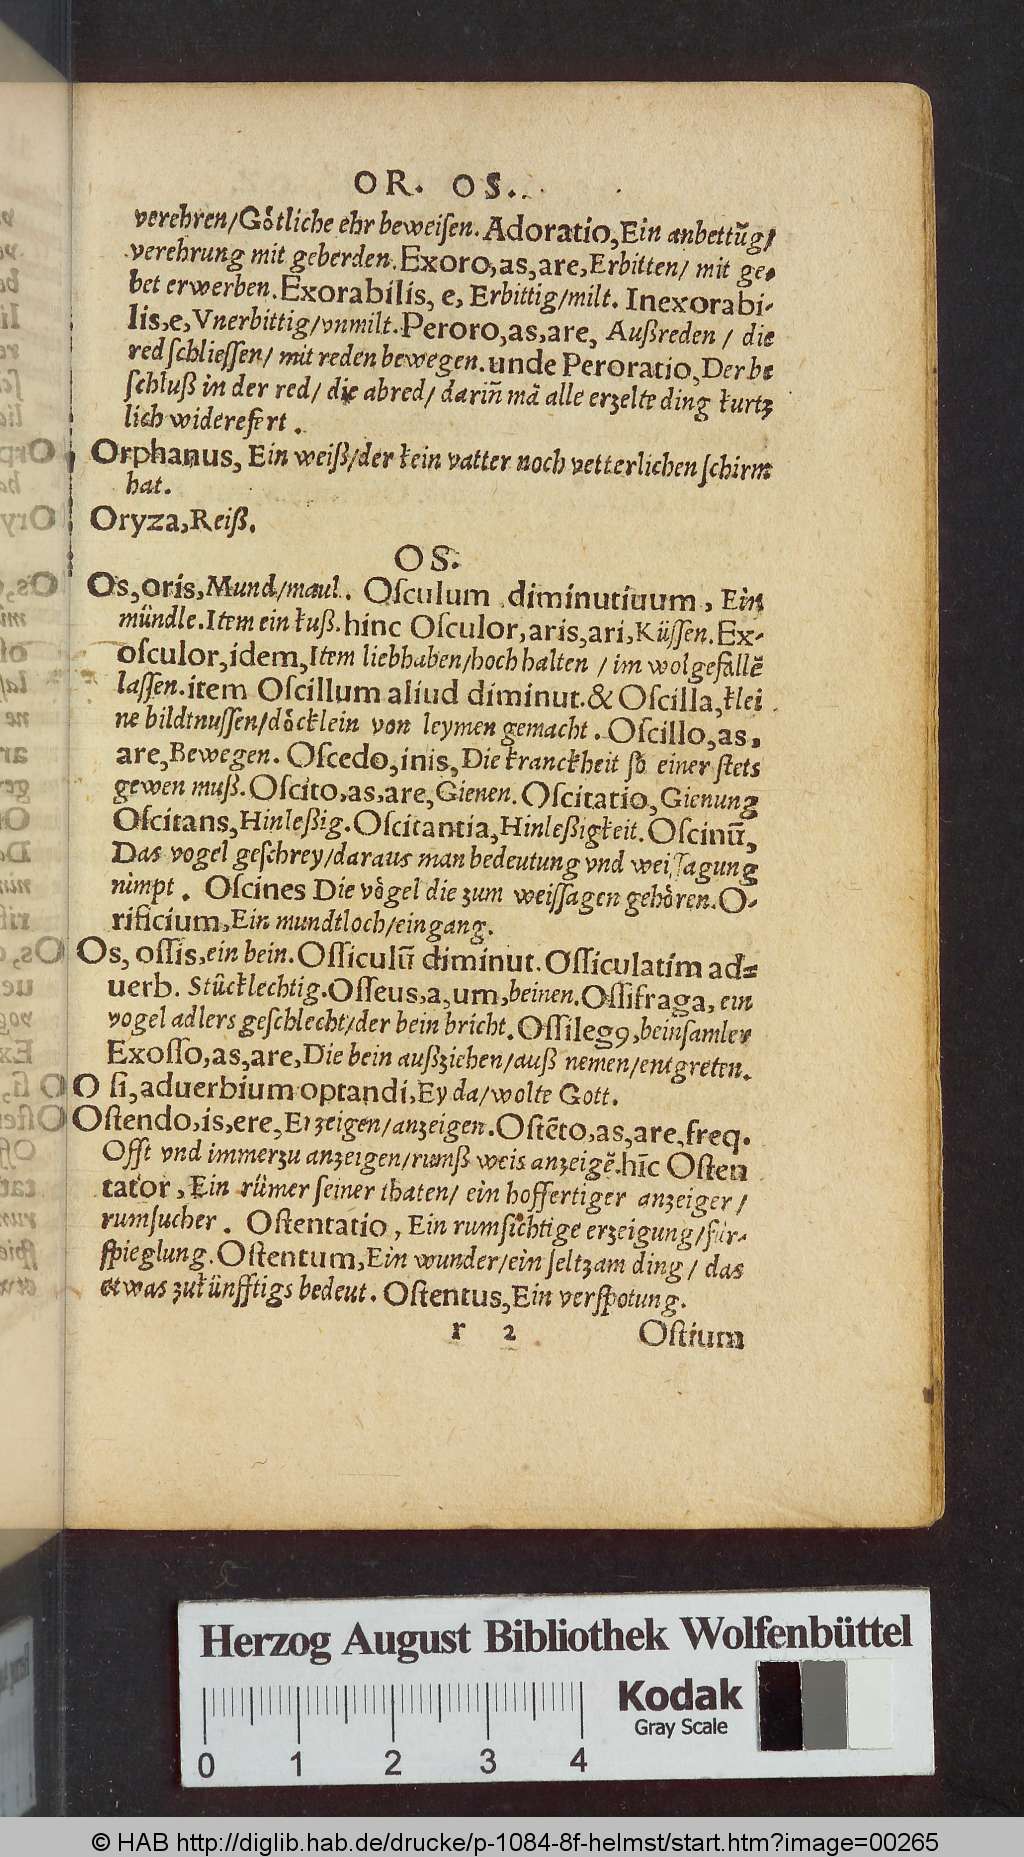 OR. OS.
verehren/Götliche ehr beweiſen. Adoratio, Ein anbettũg/
verehrung mit geberden. Exoro, as, are, Erbitten/ mit ge-
bet erwerben. Exorabilis, e, Erbittig/milt. Inexorabi-
lis, e, Vnerbittig/vnmilt. Peroro, as, are, Außreden / die
red ſchlieſſen/ mit reden bewegen. unde Peroratio, Der be
ſchluß in der red/ die abred/ dariñ mã alle erzelte ding kurtz
lich widerefert .
Orphanus, Ein weiß/der kein vatter noch vetterlichen ſchirm
hat.
Oryza, Reiß.
OS.
Os, oris, Mund/maul. Oſculum diminutiuum, Ein
mündle. Item ein kuß. hinc Oſculor, aris, ari, Küſſen. Ex-
oſculor, idem, Item liebhaben/hoch halten / im wolgefallẽ
laſſen. item Oſcillum aliud diminut. & Oſcilla, klei
ne bildtnuſſen/döcklein von leymen gemacht. Oſcillo, as,
are, Bewegen. Oſcedo, inis, Die kranckheit ſo einer ſtets
gewen muß. Oſcito, as, are, Gienen. Oſcitatio, Gienung
Oſcitans, Hinleßig. Oſcitantia, Hinleßigkeit. Oſcinũ,
Das vogel geſchrey/daraus man bedeutung vnd weiſſagung
nimpt . Oſcines Die vögel die zum weiſſagen gehören. O-
rificium, Ein mundtloch/eingang.
Os, oſſis, ein bein. Oſſiculũ diminut. Oſſiculatim ad-
uerb. Stücklechtig. Oſſeus, a, um, beinen. Oſſifraga, ein
vogel adlers geſchlecht/der bein bricht. Oſſilegꝰ, beinſamler
Exoſſo, as, are, Die bein außziehen/auß nemen/entgreten.
O ſi, aduerbium optandi, Ey da/wolte Gott.
Oſtendo, is, ere, Erzeigen/anzeigen. Oſtẽto, as, are, freq.
Offt vnd immerzu anzeigen/rumß weis anzeigẽ. hĩc Oſten
tator, Ein rümer ſeiner thaten/ ein hoffertiger anzeiger/
rumſucher . Oſtentatio, Ein rumſichtige erzeigung/für-
ſpieglung. Oſtentum, Ein wunder/ein ſeltzam ding/ das
etwas zukünfftigs bedeut. Oſtentus, Ein verſpotung.
r 2 Oſtium
Herzog August Bibliothek Wolfenbüttel
Kodak
Gray Scale
0 1 2 3 4
© HAB http://diglib.hab.de/drucke/p-1084-8f-helmst/start.htm?image=00265